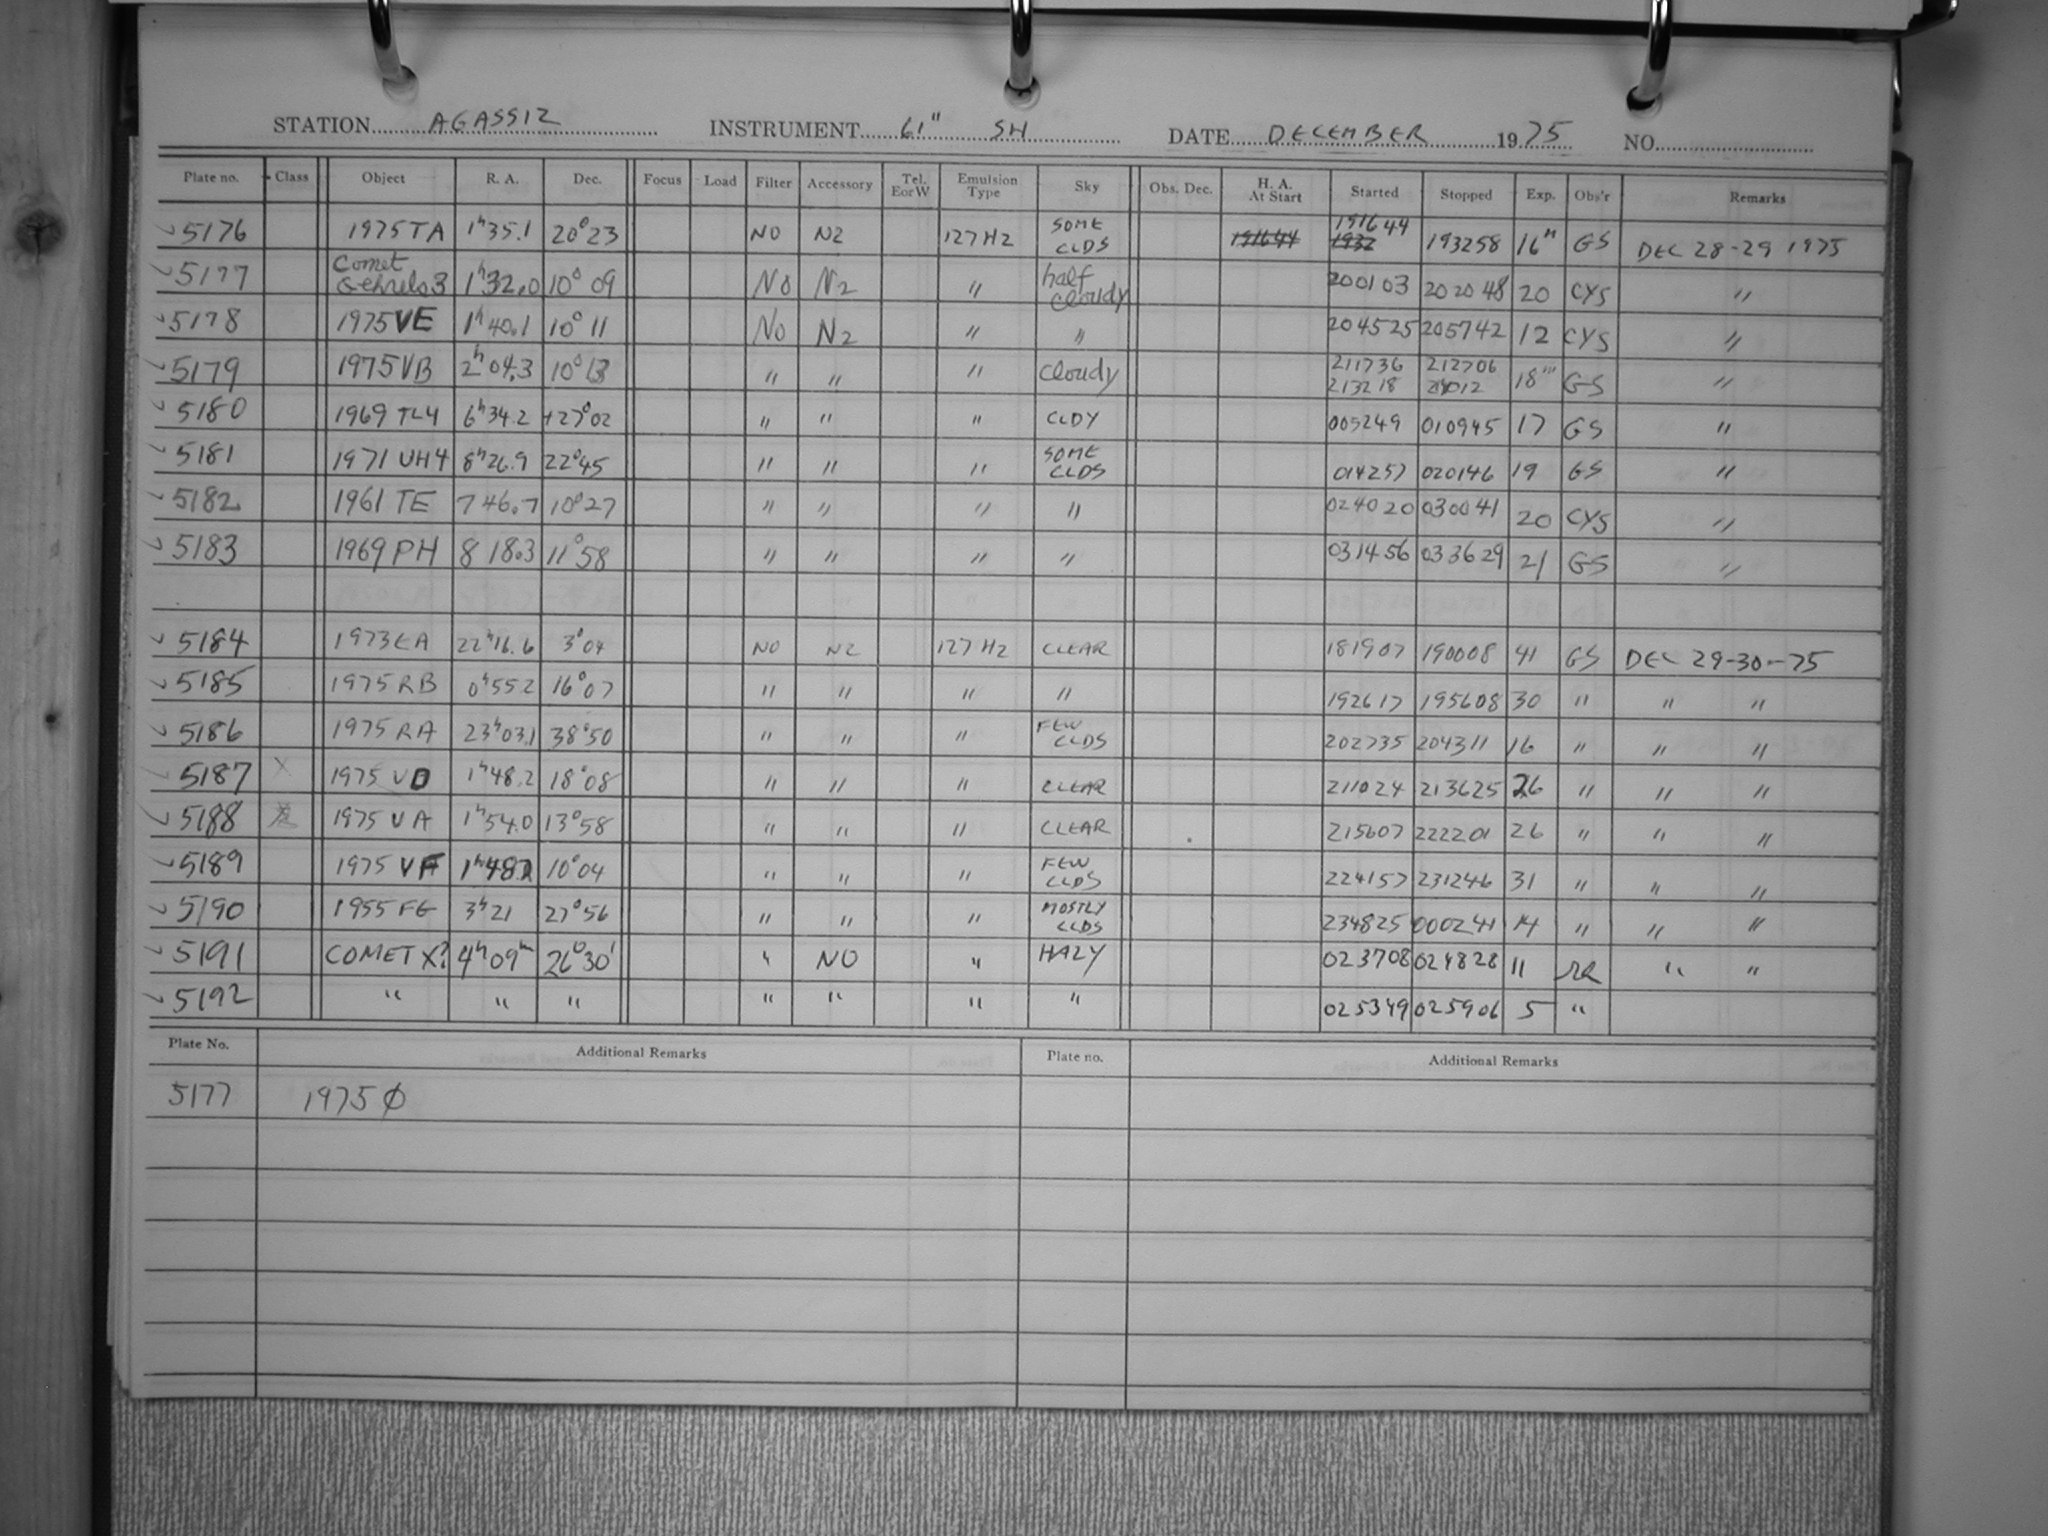 STATION AGASSIZ INSTRUMENT 61" SH DATE DECEMBER 1975 NO.
Plate no. Class Object R. A. Dec. Focus Load Filter Accessory Tel. E or W Emulsion Type Sky Obs. Dec. H. A. At Start Started Stopped Exp. Obs'r Remarks
5176 1975TA 1h35.1 20°23 NO N2 127H2 SOME CLDS 191644 1932 191644 193258 16m GS DEC 28-29 1975
5177 Comet Gehrels3 1h32.0 10°09 NO N2 " half cloudy 200103 202048 20 CYS "
5178 1975VE 1h40.1 10°11 NO N2 " " 204525 205742 12 CYS "
5179 1975VB 2h04.3 10°13 " " " cloudy 211736 212706 213218 18m GS "
5180 1969 TL4 6h34.2 +27°02 " " " CLDY 005249 010945 17 GS "
5181 1971 UH4 8h26.9 22°45 " " " SOME CLDS 014257 020146 19 GS "
5182 1961 TE 7 46.7 10°27 " " " " 024020 030041 20 CYS "
5183 1969 PH 8 18.3 11°58 " " " " 031456 033629 21 GS "
5184 1973EA 22h16.6 3°04 NO N2 127H2 CLEAR 181907 190008 41 GS DEC 29-30-75
5185 1975 RB 0h55.2 16°07 " " " " 192617 195608 30 " " "
5186 1975 RA 23h03.1 38°50 " " " FEW CLDS 202735 204311 16 " " "
5187 X 1975 VD 1h48.2 18°08 " " " CLEAR 211024 213625 26 " " "
5188 1975 VA 1h54.0 13°58 " " " CLEAR 215607 222201 26 " " "
5189 1975 VF 1h48.2 10°04 " " " FEW CLDS 224157 231246 31 " " "
5190 1955 FG 3h21 27°56 " " " MOSTLY CLDS 234825 000241 14 " " "
5191 COMET X? 4h09m 26°30' " NO " HAZY 023708 024828 11 RR " "
5192 " " " " " " " 025349 025906 5 "
Plate No. Additional Remarks Plate no. Additional Remarks
5177 1975 Ø